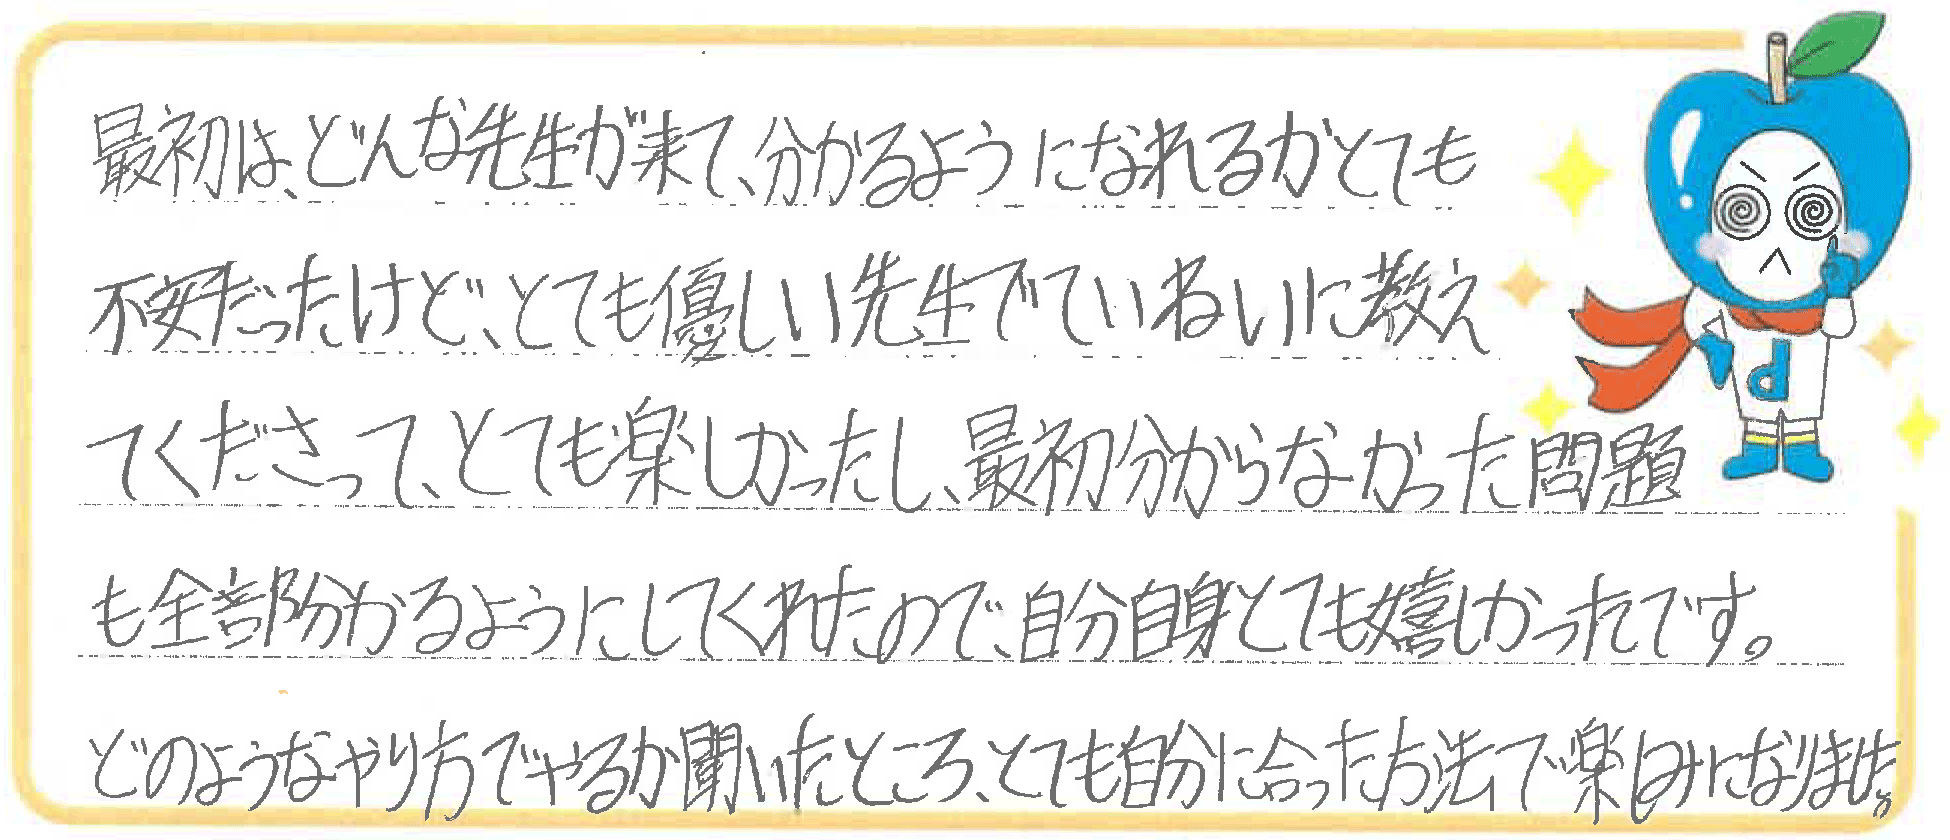 最初は、どんな先生が来て、分かるようになれるかとても
不安だったけど、とても優しい先生でていねいに教え
てくださって、とても楽しかったし、最初分からなかった問題
も全部分かるようにしてくれたので、自分自身とても嬉しかったです。
どのようなやり方でやるか聞いたところ、とても自分に合った方法で楽しみになりました。
d